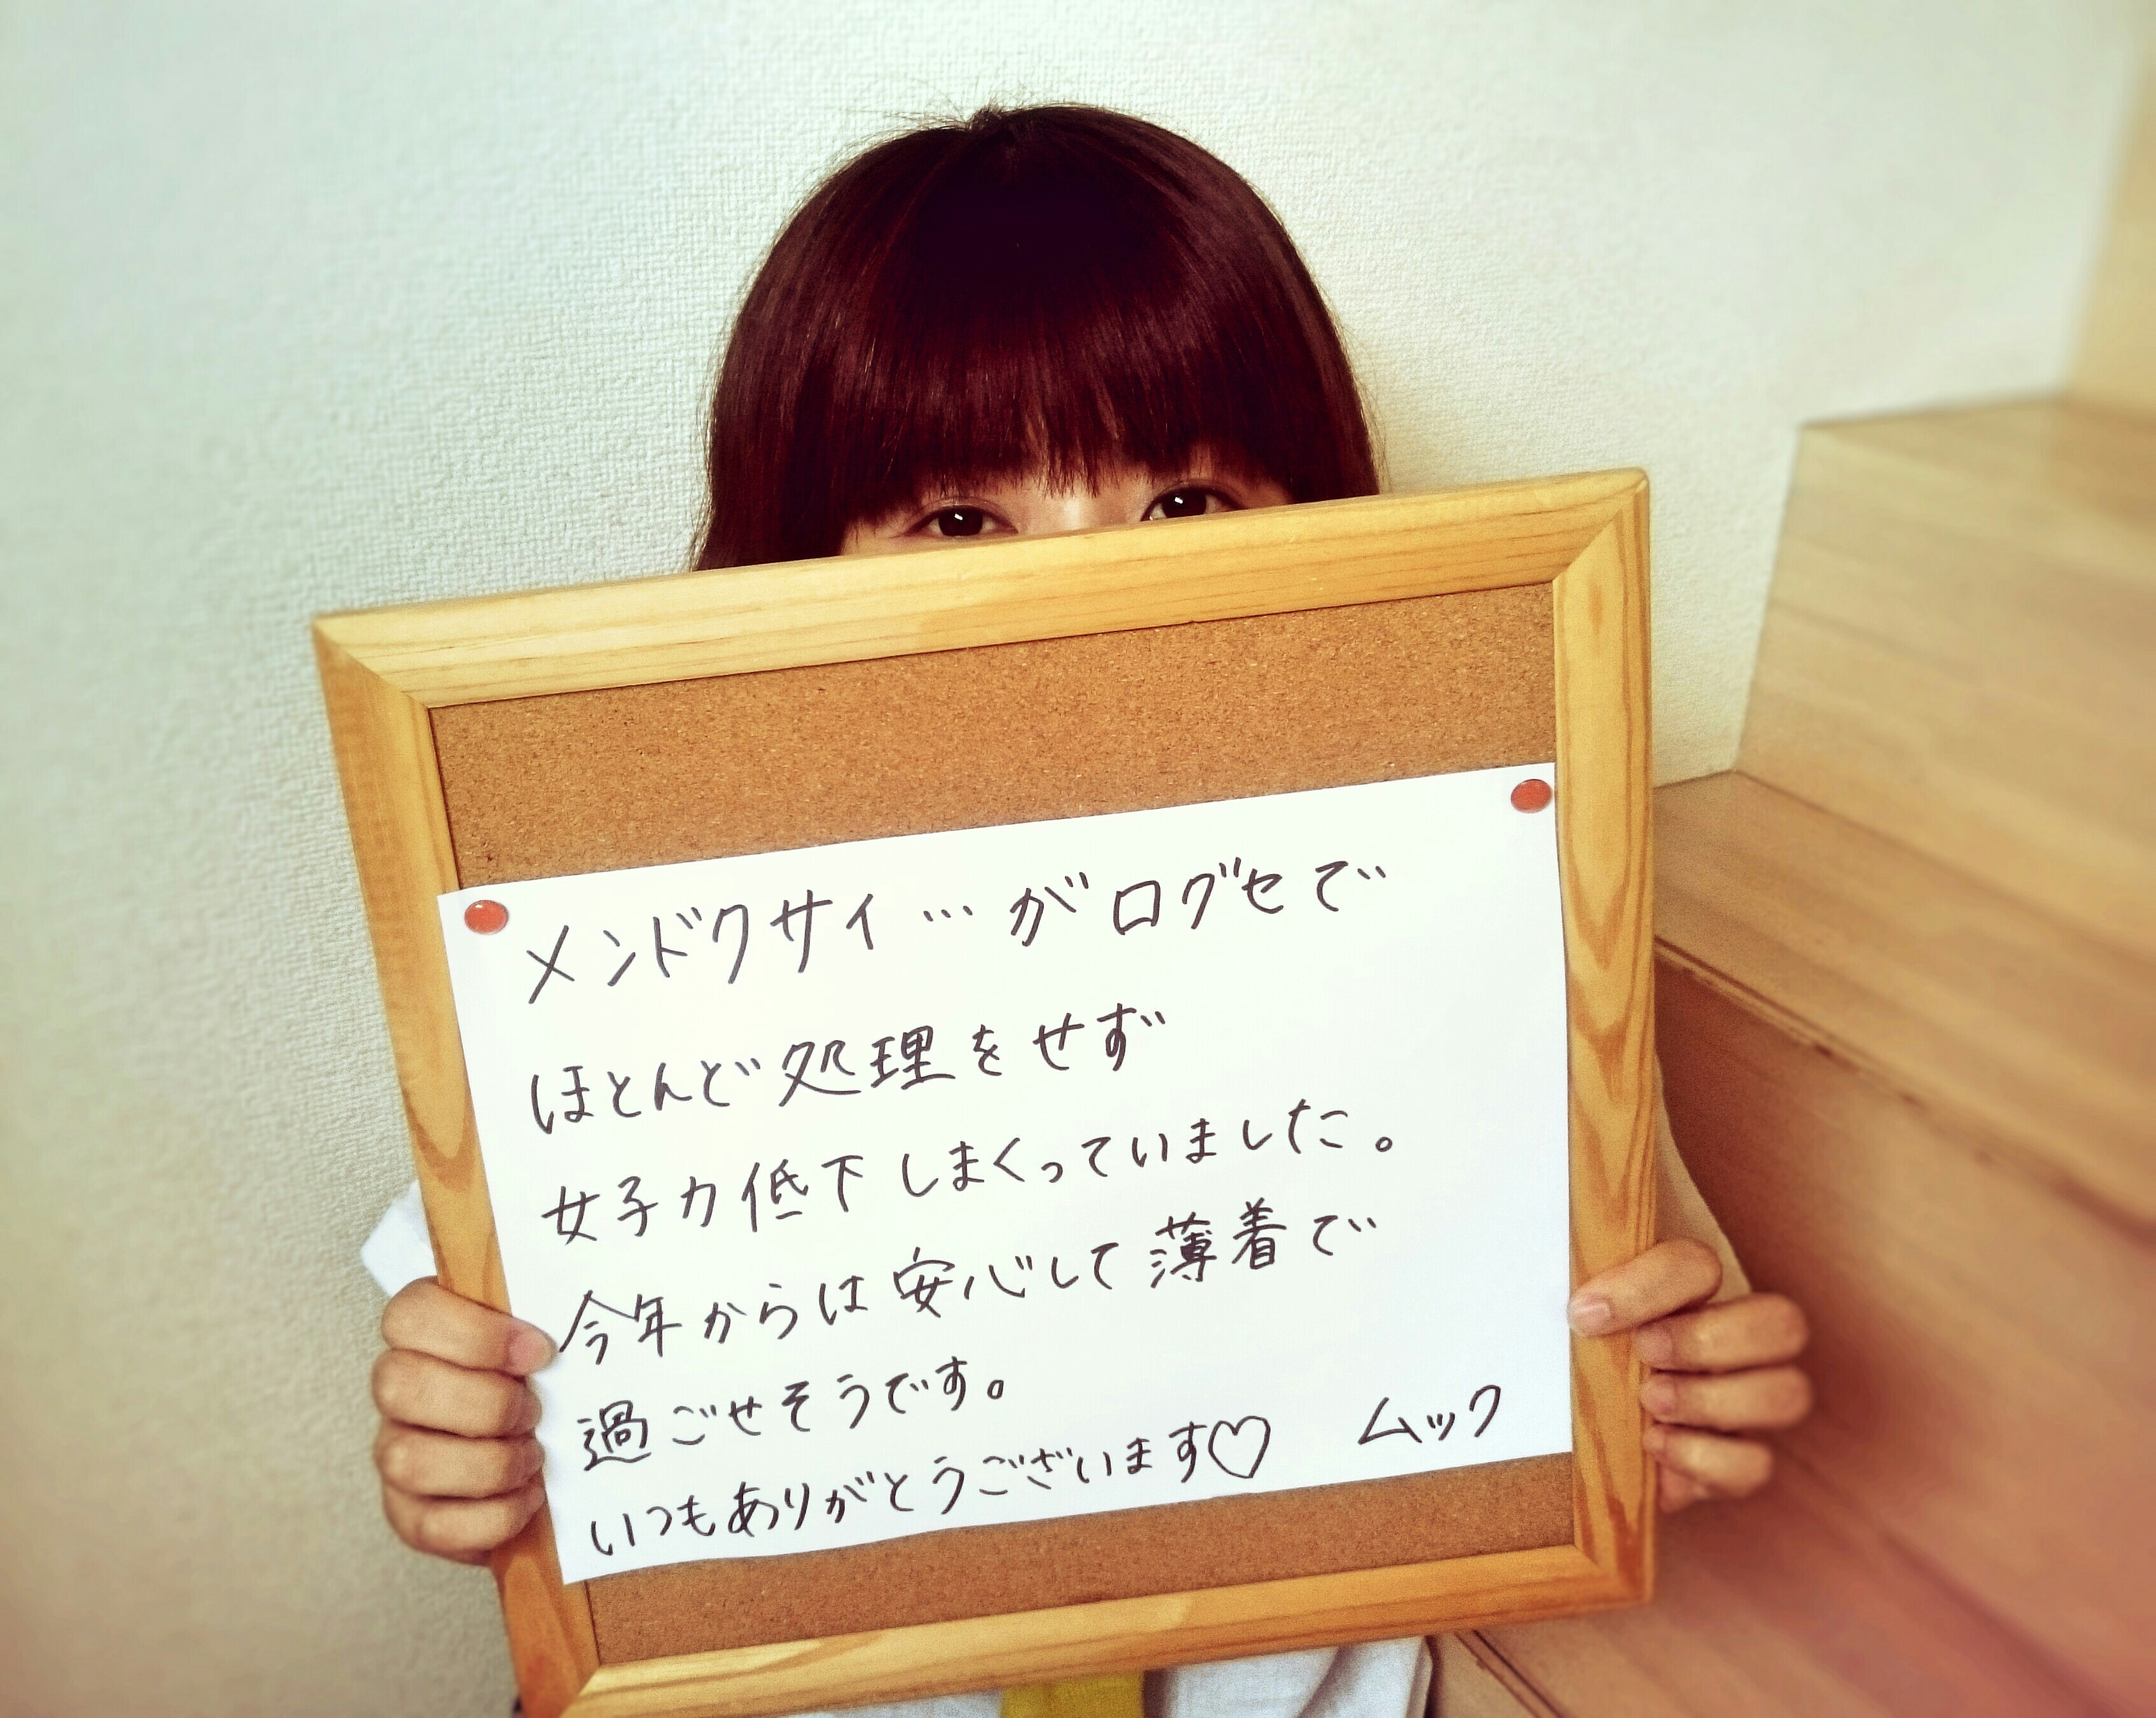 メンドクサイ…が口グセで
ほとんど処理をせず
女子力低下しまくっていました。
今年からは安心して薄着で
過ごせそうです。
いつもありがとうございます♡ ムック